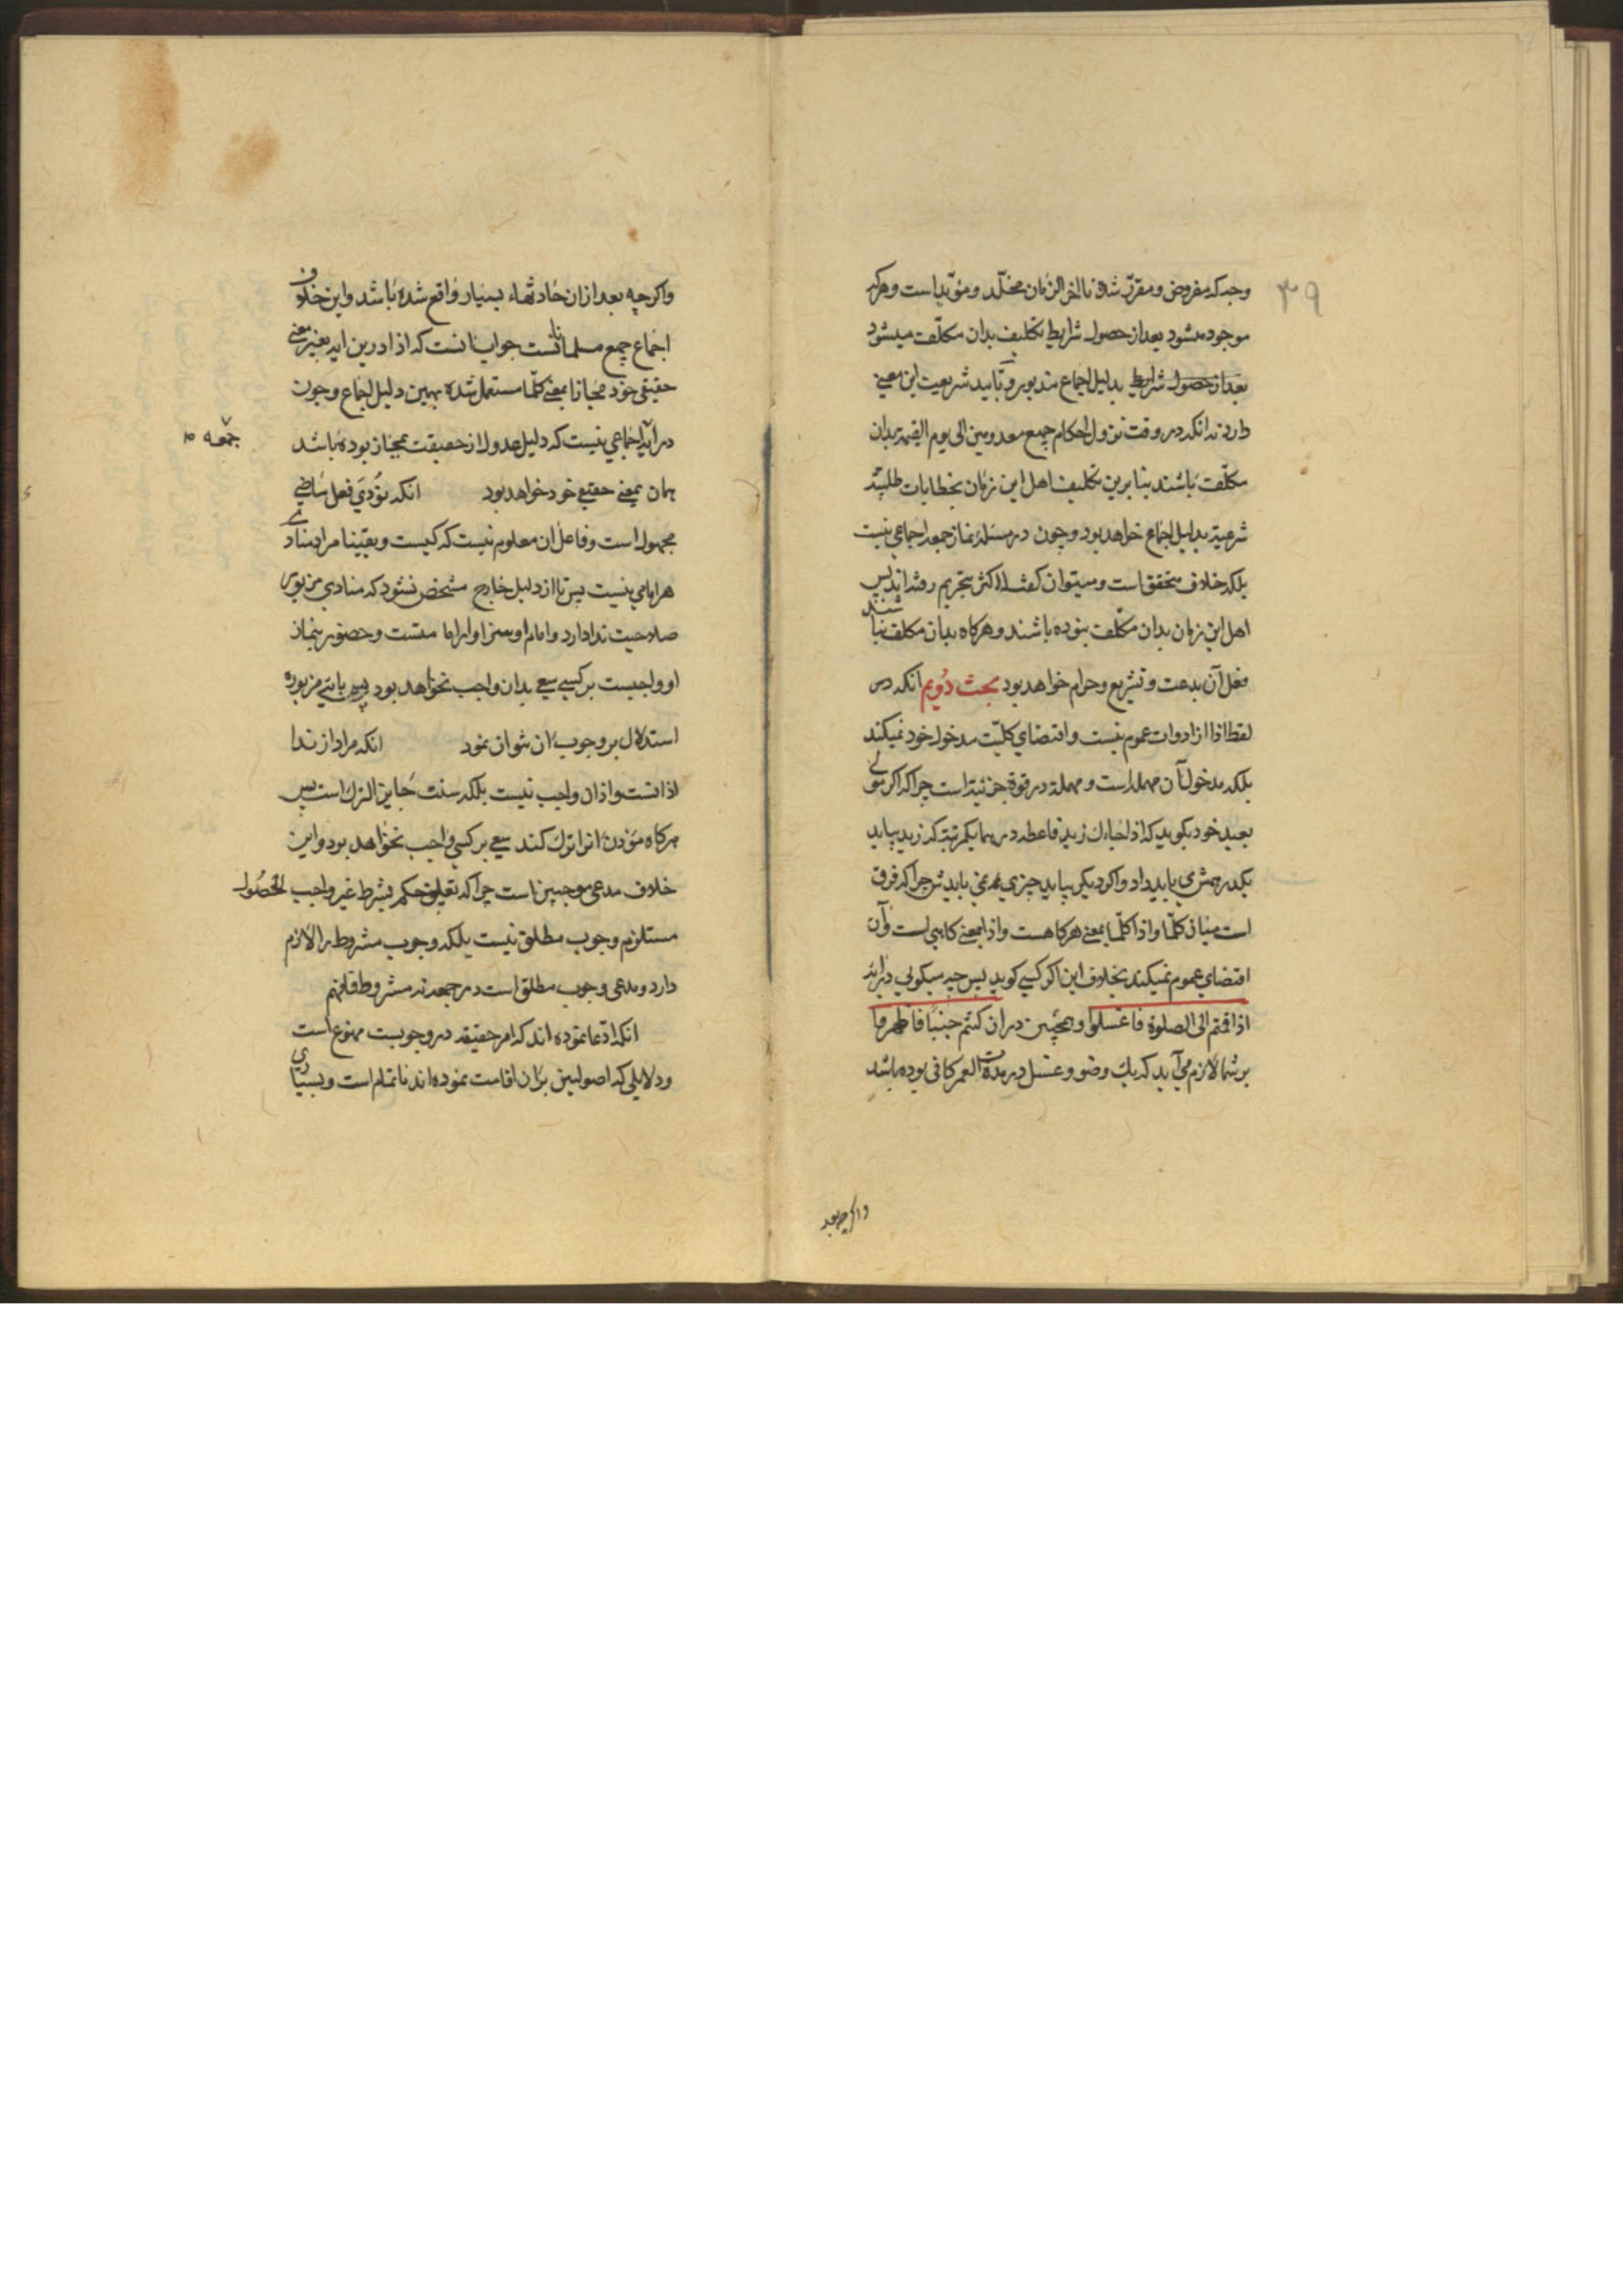 ۳۹
وجه که مفروض و مقرر شده تا اخر الزمان مخلّد و مؤبد است و هرکه
موجود میشود بعد از حصول شرایط تکلیف بدان مکلّف میشود
بعد از حصول شرایط بدلیل اجماع مزبور و تأبید شریعت این معنی
دارد نه انکه در وقت نزول احکام جمیع معدومین الی یوم القیمة بدان
مکلّف باشند بنابرین تکلیف اهل این زمان بخطابات طلبیّه
شرعیّة بدلیل اجماع خواهد بود و چون در مسئلۀ نماز جمعه اجماعی نیست
بلکه خلاف متحقق است و میتوان گفت که اکثر بتحریم رفته اند پس
اهل این زمان بدان مکلّف نبوده باشند و هرگاه بدان مکلف نباشند
فعل آن بدعت و تشریع و حرام خواهد بود بحث دُویم انکه در
لفظ اذا از ادوات عموم نیست و اقتضای کلیّت مدخول خود نمیکند
بلکه مدخول آن مهمله است و مهملة در قوة جزئیة است چرا که اگر مولی
بعبد خود بگوید که اذا جاءك زید فاعطه درهما یکمرتبه که زید بیاید
یکدرهمش می باید داد و اگر دیگر بیاید چیزی نمی بایدش چرا که فرق
است میان کلّما و اذا کلّما بمعنی هرگاهست و اذا بمعنی گاهی است و آن
اقتضای عموم نمیکند بخلاف این اگر کسی گوید پس چه میگوئی در ایۀ
اذا قمتم الی الصلوة فاغسلوا و همچنین در ان کنتم جنبًا فاطهروا
بر شما لازم می آید که یك وضو و غسل در مدت العمر کافی بوده باشد
واگرچه بعد
واگرچه بعد از ان حادثهاء بسیار واقع شده باشد و این خلاف
اجماع جمیع مسلمانانست جواب انست که اذا درین ایه بغیر معنی
حقیقی خود مجازا بمعنی کلّما مستعمل شده بهمین دلیل اجماع و چون
در آیۀ جمعه اجماعی نیست که دلیل عدول از حقیقت بمجاز بوده باشد
همان بمعنی حقیقی خود خواهد بود انکه نُودِیَ فعل ماضی
مجهول است و فاعل ان معلوم نیست که کیست و یقینا مراد منادی
هرامامی نیست پس تا از دلیل خارج مشخص نشود که منادی مزبور
صلاحیت ندا دارد و امام او سزاوار امامتست و حضور بنماز
او واجبست بر کسی سعی بدان واجب نخواهد بود پس بایۀ مزبوره
استدلال بر وجوب ان نتوان نمود انکه مراد از ندا
اذانست و اذان واجب نیست بلکه سنت جایز الترك است پس
هرگاه مؤذن انرا ترك کند سعی بر کسی واجب نخواهد بود و این
خلاف مدعی موجبین است چرا که تعلیق حکم بشرط غیر واجب الحصول
مستلزم وجوب مطلق نیست بلکه وجوب مشروط را لازم
دارد و مدعی وجوب مطلق است در جمعه نه مشروط فافهم
انکه ادّعا نموده اند که امر حقیقة در وجوبست ممنوع است
و دلایلی که اصولیین بران اقامت نموده اند ناتمام است و بسیاری